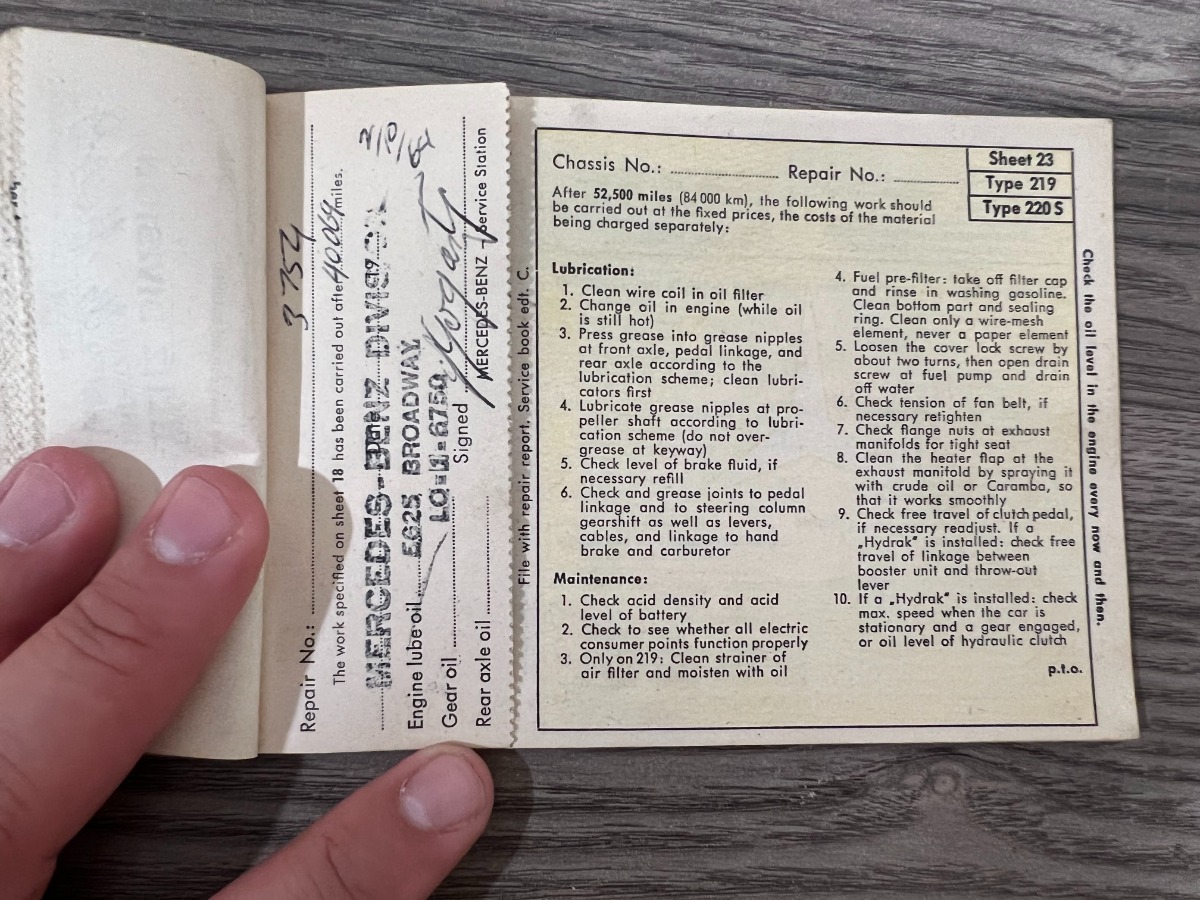 Repair No.: 3752
The work specified on sheet 18 has been carried out after 40009 miles.
MERCEDES-BENZ DIVISION
19
Engine lube oil 5625 BROADWAY
Gear oil LO-1-6750 Signed
Rear axle oil MERCEDES-BENZ - Service Station
File with repair report, Service book edt. C.
Chassis No.: Repair No.:
Sheet 23
Type 219
Type 220 S
After 52,500 miles (84 000 km), the following work should
be carried out at the fixed prices, the costs of the material
being charged separately:
Lubrication:
1. Clean wire coil in oil filter
2. Change oil in engine (while oil
is still hot)
3. Press grease into grease nipples
at front axle, pedal linkage, and
rear axle according to the
lubrication scheme; clean lubri-
cators first
4. Lubricate grease nipples at pro-
peller shaft according to lubri-
cation scheme (do not over-
grease at keyway)
5. Check level of brake fluid, if
necessary refill
6. Check and grease joints to pedal
linkage and to steering column
gearshift as well as levers,
cables, and linkage to hand
brake and carburetor
Maintenance:
1. Check acid density and acid
level of battery
2. Check to see whether all electric
consumer points function properly
3. Only on 219: Clean strainer of
air filter and moisten with oil
4. Fuel pre-filter: take off filter cap
and rinse in washing gasoline.
Clean bottom part and sealing
ring. Clean only a wire-mesh
element, never a paper element
5. Loosen the cover lock screw by
about two turns, then open drain
screw at fuel pump and drain
off water
6. Check tension of fan belt, if
necessary retighten
7. Check flange nuts at exhaust
manifolds for tight seat
8. Clean the heater flap at the
exhaust manifold by spraying it
with crude oil or Caramba, so
that it works smoothly
9. Check free travel of clutch pedal,
if necessary readjust. If a
„Hydrak" is installed: check free
travel of linkage between
booster unit and throw-out
lever
10. If a „Hydrak" is installed: check
max. speed when the car is
stationary and a gear engaged,
or oil level of hydraulic clutch
p.t.o.
Check the oil level in the engine every now and then.